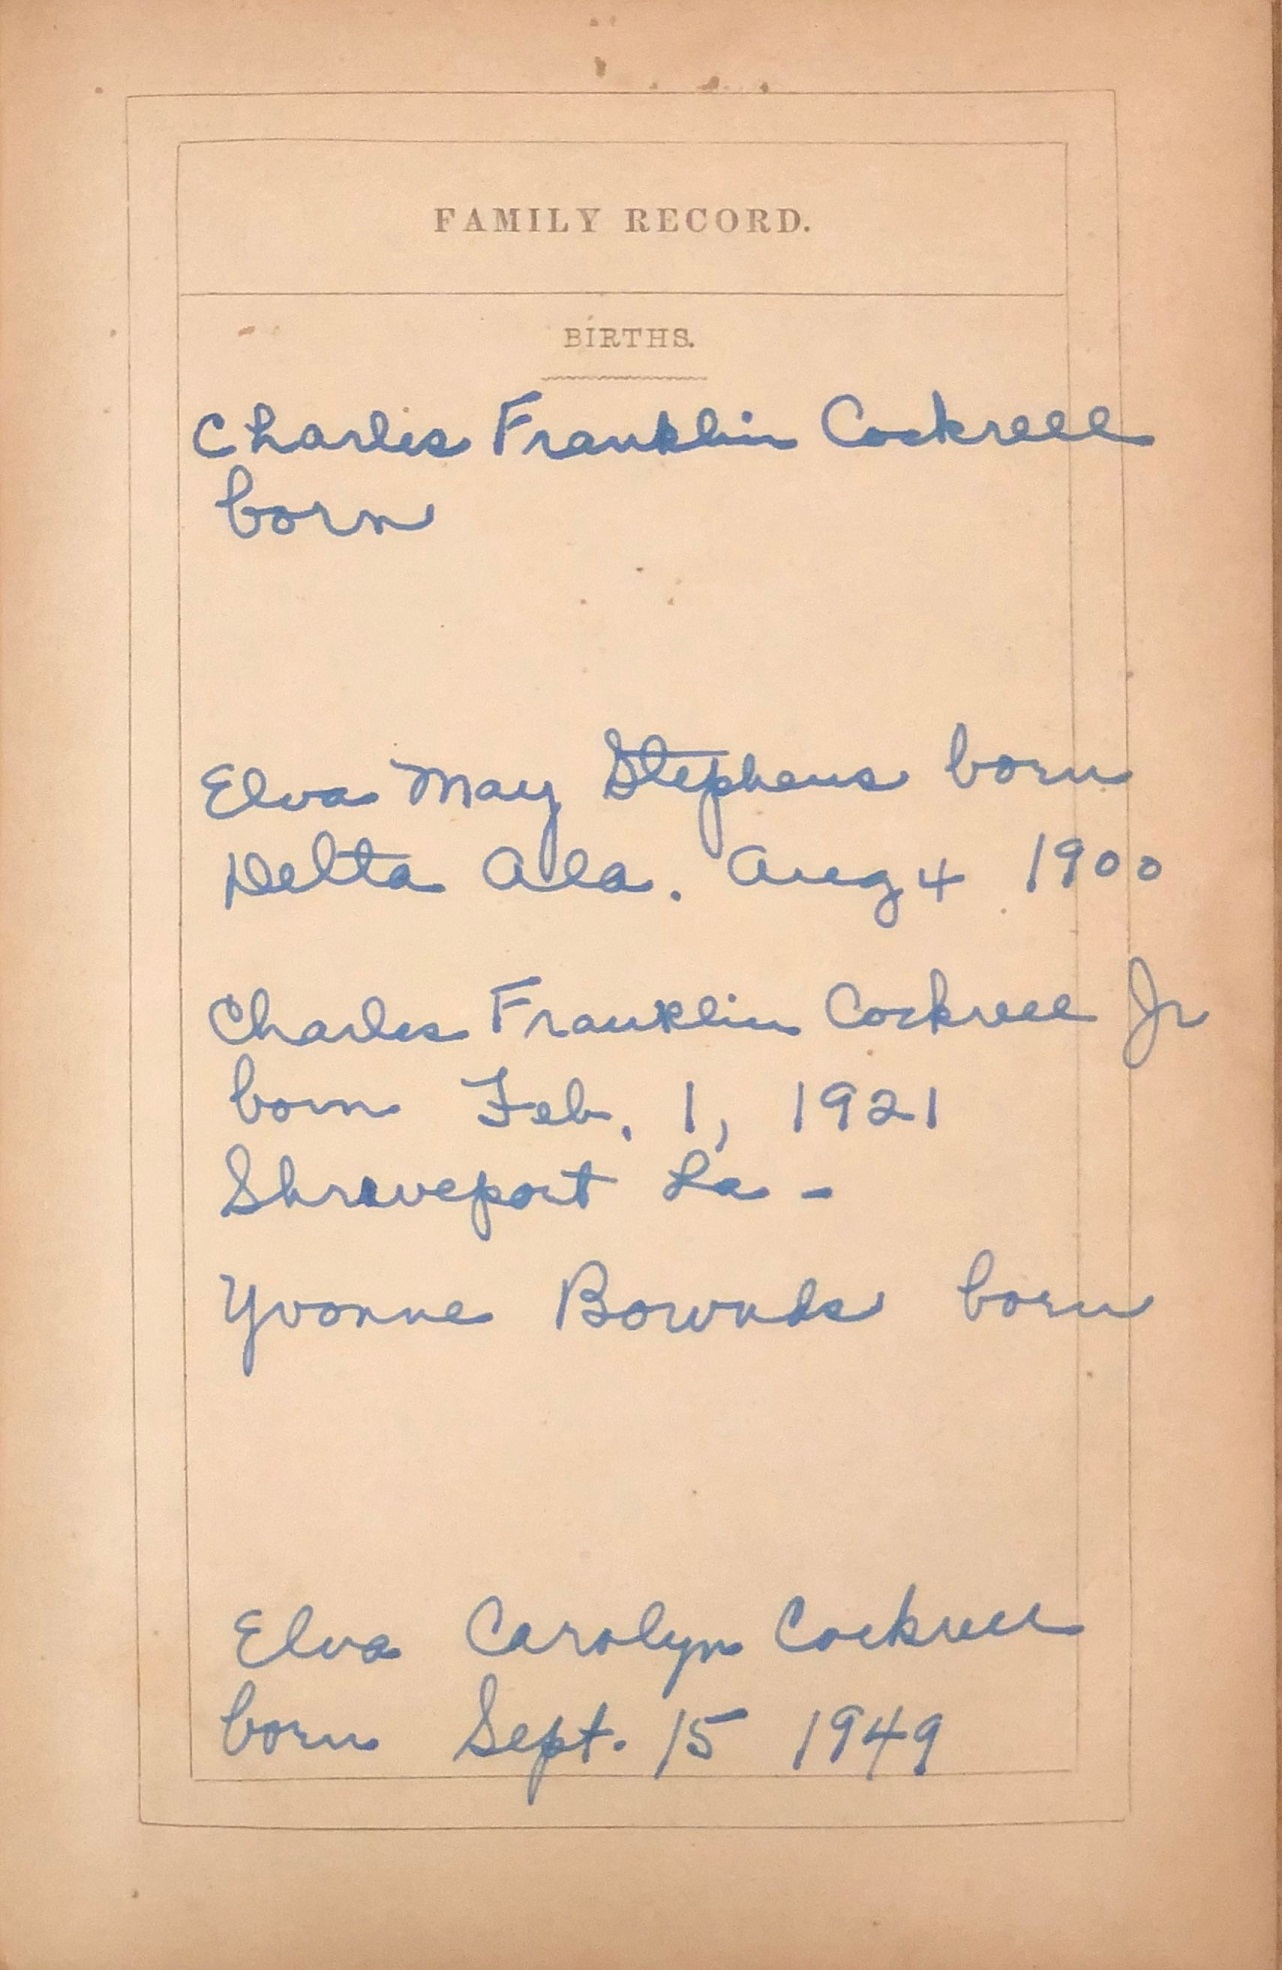 FAMILY RECORD.
BIRTHS.
Charles Franklin Cockrell
born
Elva May Stephens born
Delta Ala. Aug 4 1900
Charles Franklin Cockrell Jr
born Feb. 1, 1921
Shreveport La -
Yvonne Bownds born
Elva Carolyn Cockrell
born Sept. 15 1949